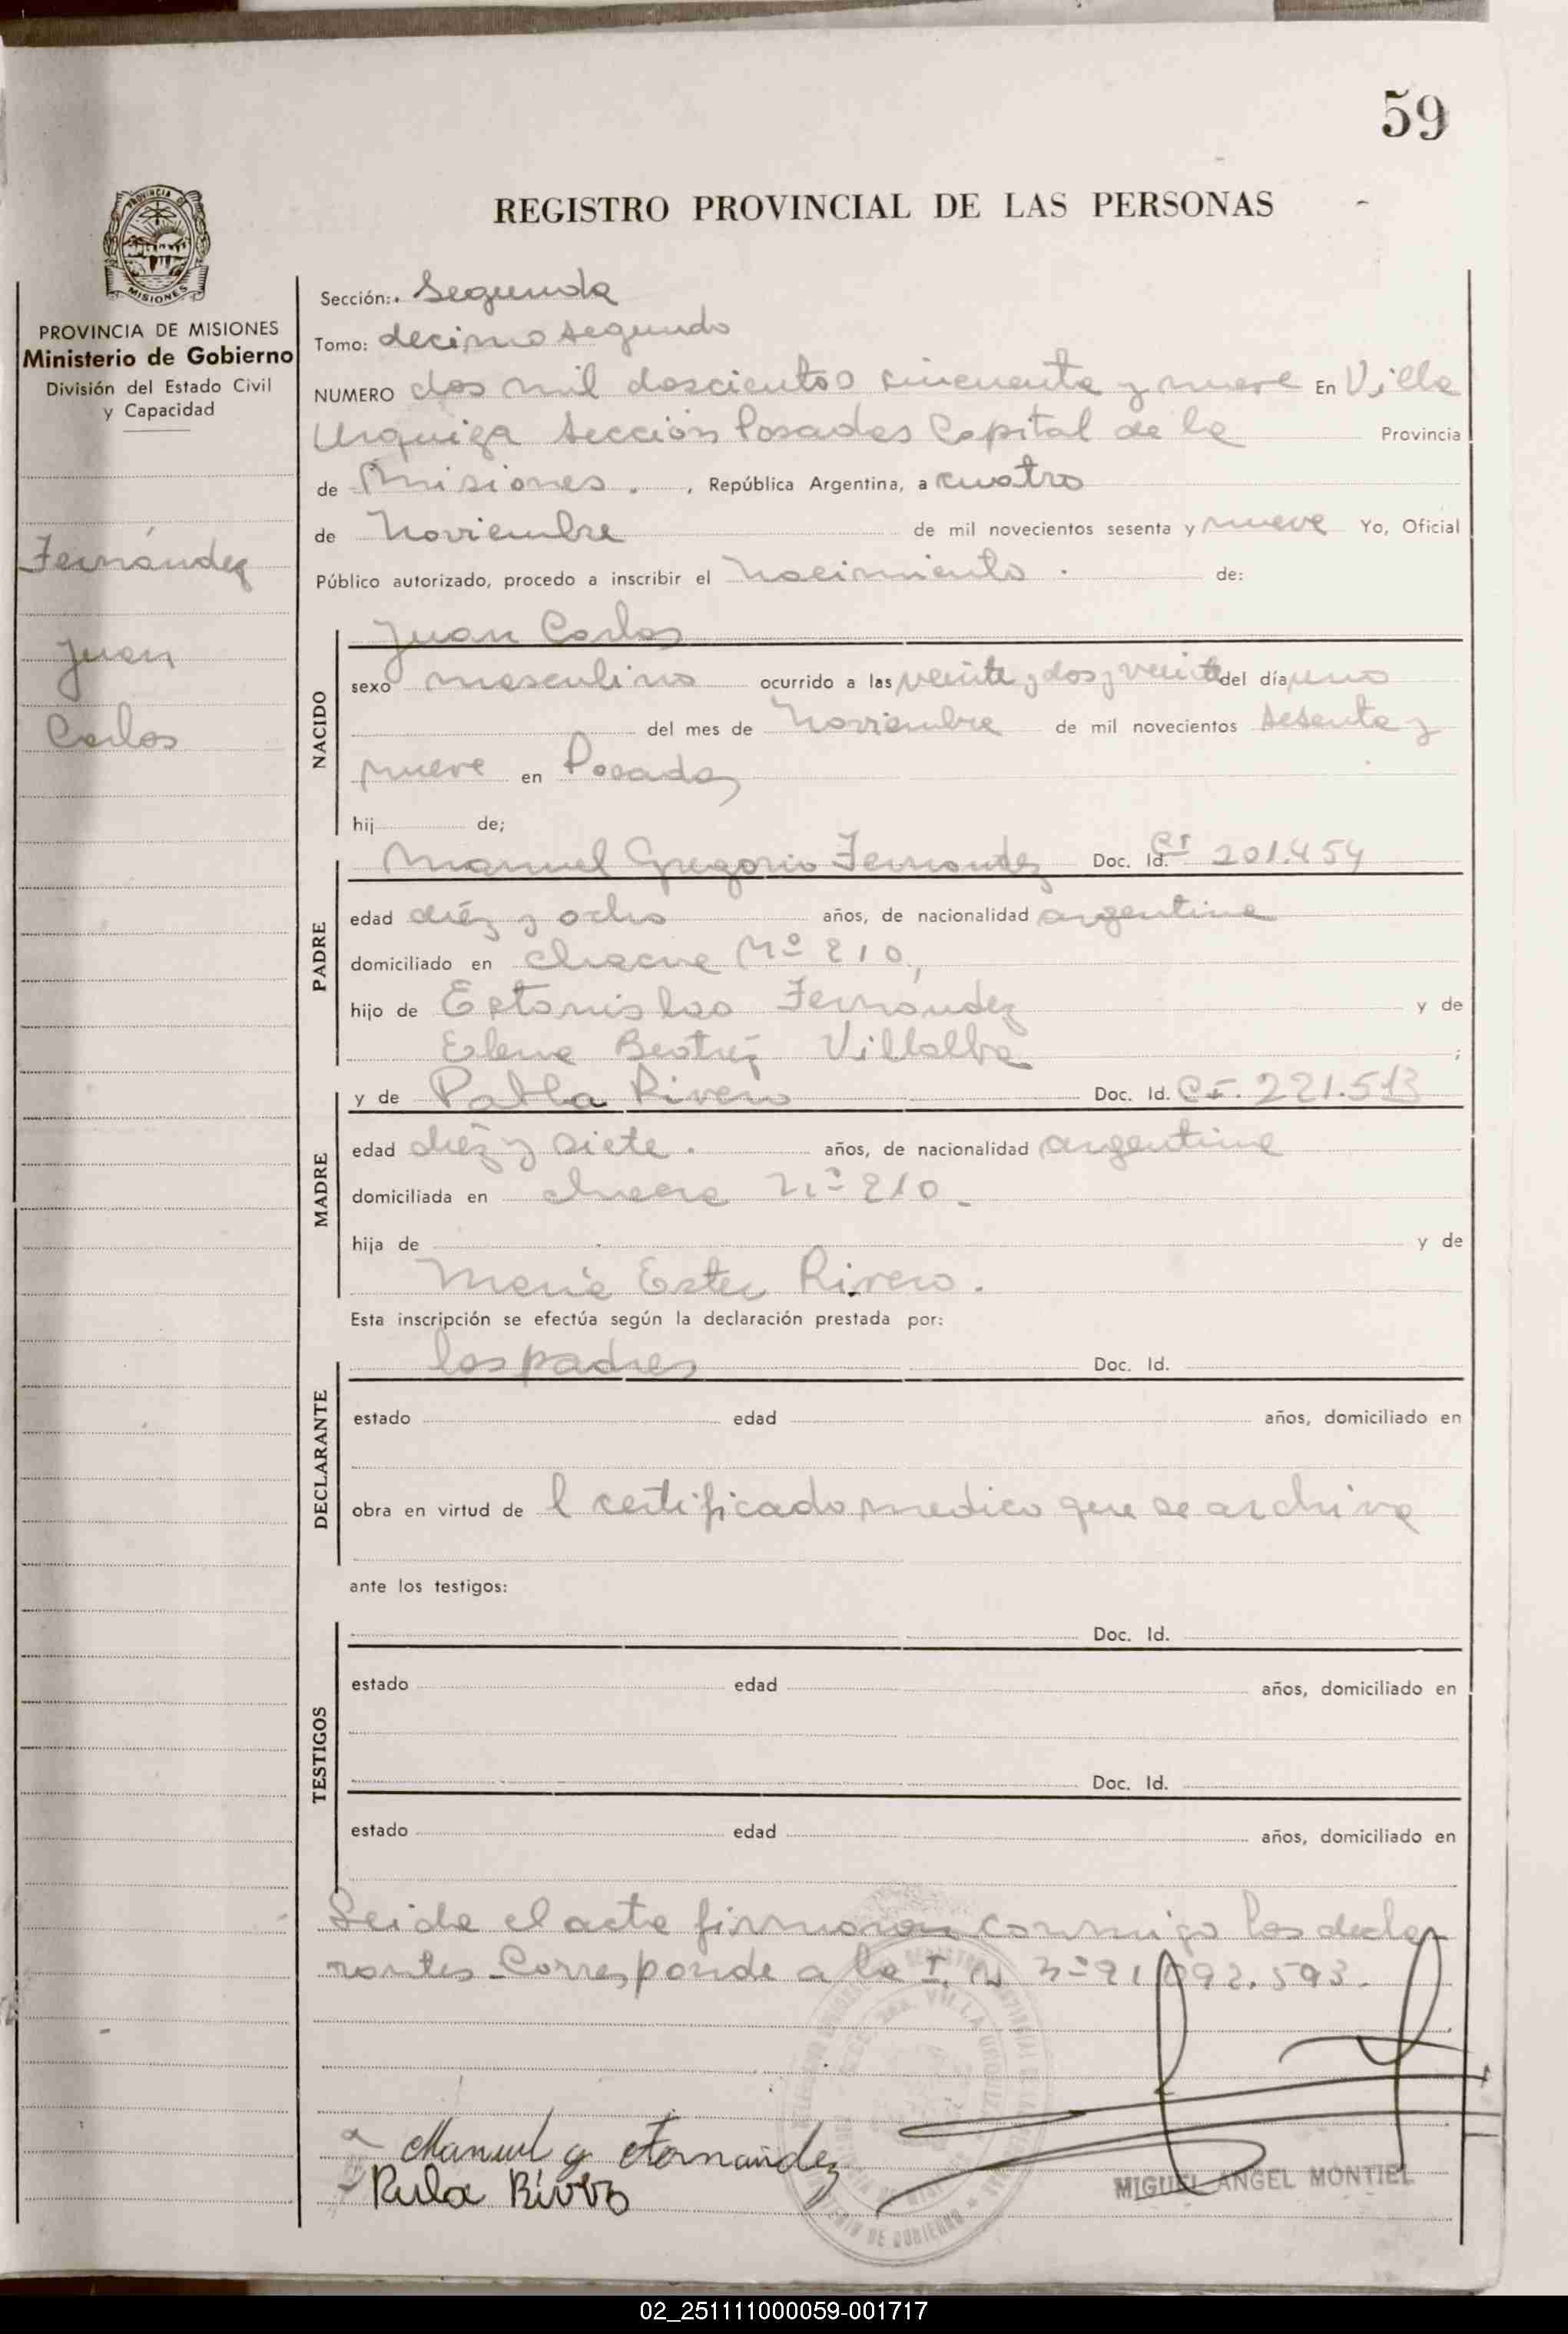 59
REGISTRO PROVINCIAL DE LAS PERSONAS
PROVINCIA DE MISIONES
Ministerio de Gobierno
División del Estado Civil
y Capacidad
Fernández
Juan
Carlos
Sección: Segunda
Tomo: decimo segundo
NUMERO dos mil doscientos cincuenta y nueve En Villa
Urquiza Sección Posadas Capital de la Provincia
de Misiones. , República Argentina, a cuatro
de Noviembre de mil novecientos sesenta y nueve Yo, Oficial
Público autorizado, procedo a inscribir el Nacimiento. de:
NACIDO
Juan Carlos
sexo masculino ocurrido a las veinte y dos y veinte del día uno
del mes de Noviembre de mil novecientos sesenta y
nueve en Posadas
hij de;
PADRE
Manuel Gregorio Fernandez Doc. Id. CI 201.454
edad diéz y ocho años, de nacionalidad argentina
domiciliado en chacra Nº 210,
hijo de Estanislao Fernández y de
Elena Beatríz Villalba ;
MADRE
y de Pabla Rivero Doc. Id. CI. 221.513
edad diéz y siete. años, de nacionalidad argentina
domiciliada en chacra Nº 210.
hija de y de
María Ester Rivero.
Esta inscripción se efectúa según la declaración prestada por:
DECLARANTE
los padres Doc. Id.
estado edad años, domiciliado en
obra en virtud de l certificado medico que se archiva
ante los testigos:
TESTIGOS
Doc. Id.
estado edad años, domiciliado en
Doc. Id.
estado edad años, domiciliado en
Leida el acta firmaron conmigo los decla
rantes. Corresponde a la I. N Nº 21.092.593.
Manuel g Fernandez
MIGUEL ANGEL MONTIEL
02_251111000059-001717